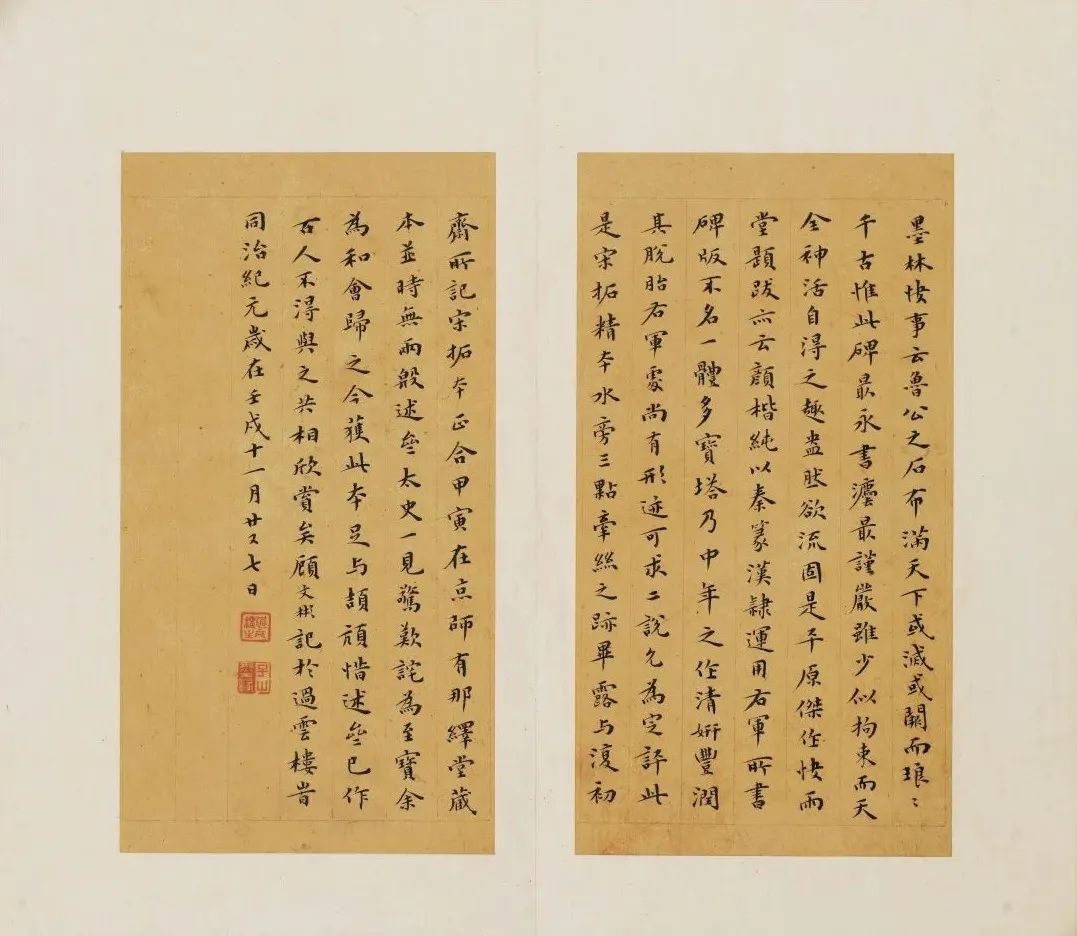 墨林快事云魯公之石布滿天下或滅或闕而琅〻
千古惟此碑最永書灋最謹嚴雖少似拘束而天
全神活自得之趣盎然欲流固是平原傑作快雨
堂題跋亦云顏楷純以秦篆漢隸運用右軍所書
碑版不名一體多寶塔乃中年之作清妍豐潤
其脫胎右軍處尚有形迹可求二說允為定評此
是宋拓精本水旁三點牽絲之跡畢露与復初
齋所記宋拓本正合甲寅在京師有那繹堂藏
本並時無兩般述盦太史一見驚歎詫為至寶余
為和會歸之今獲此本足与頡頏惜述盦已作
古人不得與之共相欣賞矣顧文彬記於過雲樓旹
同治紀元歲在壬戌十一月廿又七日